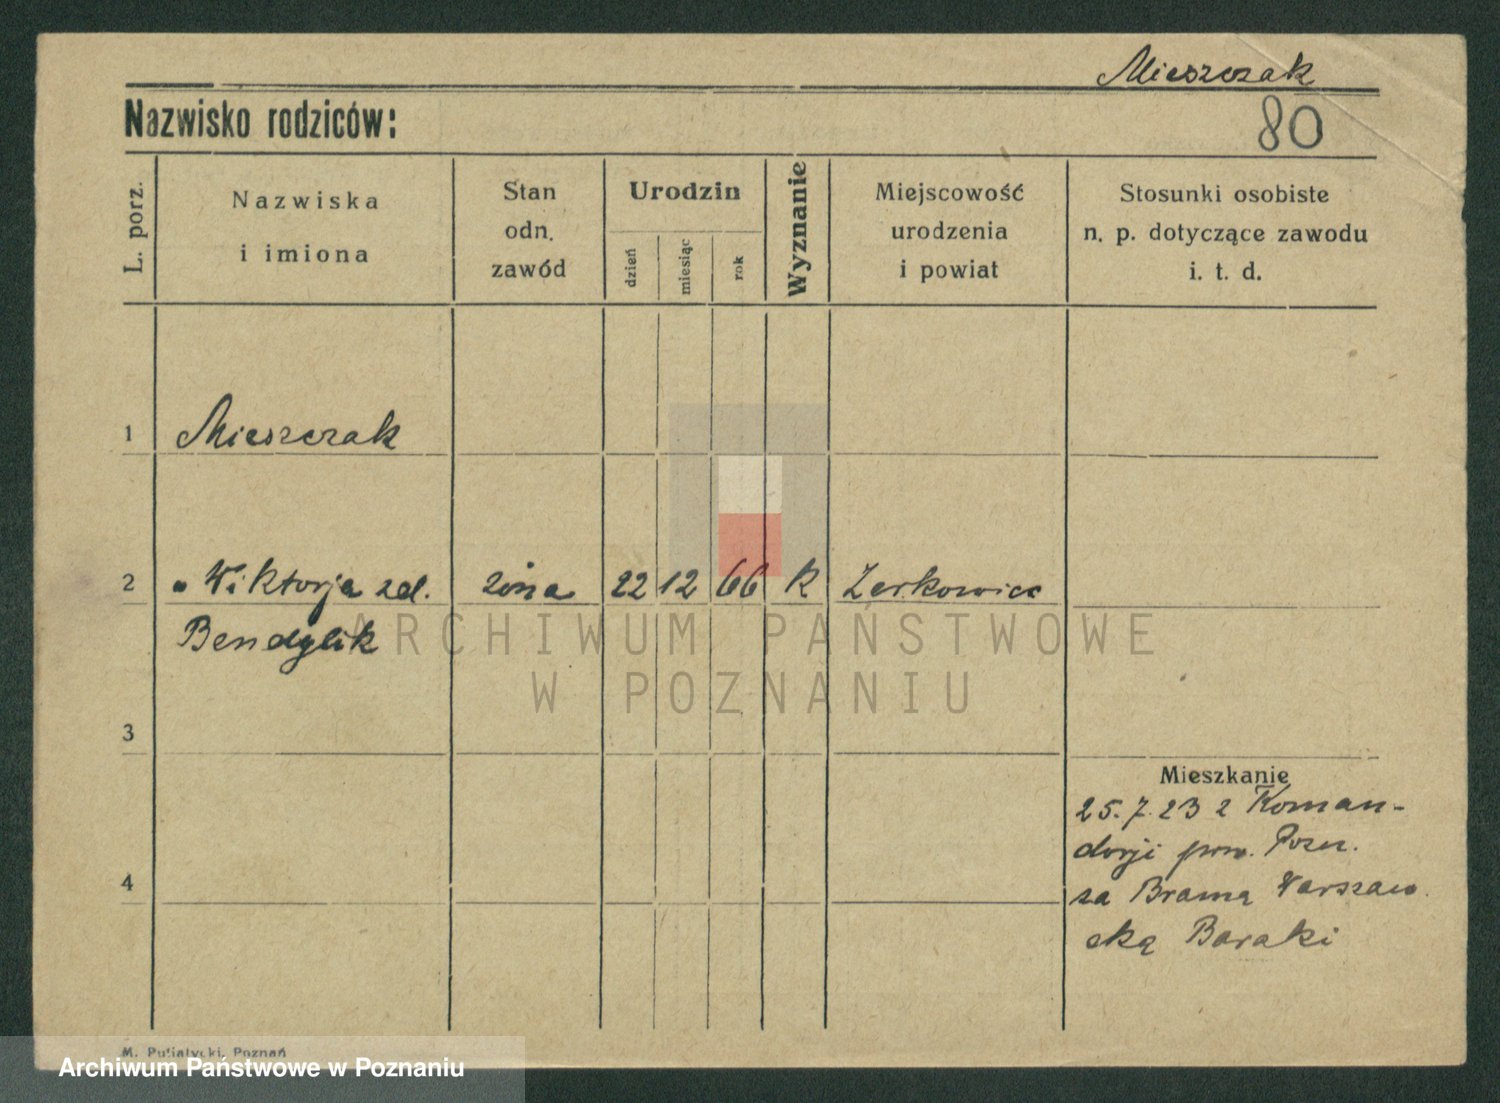 Mieszczak
Nazwisko rodziców:
80
L. porz.
Nazwiska
i imiona
Stan
odn.
zawód
Urodzin
dzień
miesiąc
rok
Wyznanie
Miejscowość
urodzenia
i powiat
Stosunki osobiste
n. p. dotyczące zawodu
i. t. d.
1 Mieszczak
2 Wiktorja zd. żona 22 12 66 k Zerkowice
Bendylik
ARCHIWUM PAŃSTWOWE
W POZNANIU
3
Mieszkanie
25.7.23 z Koman-
dorji pow. Pozn.
4 za Bramą Warszaw.
cką Baraki
M. Putiatycki, Poznań
Archiwum Państwowe w Poznaniu